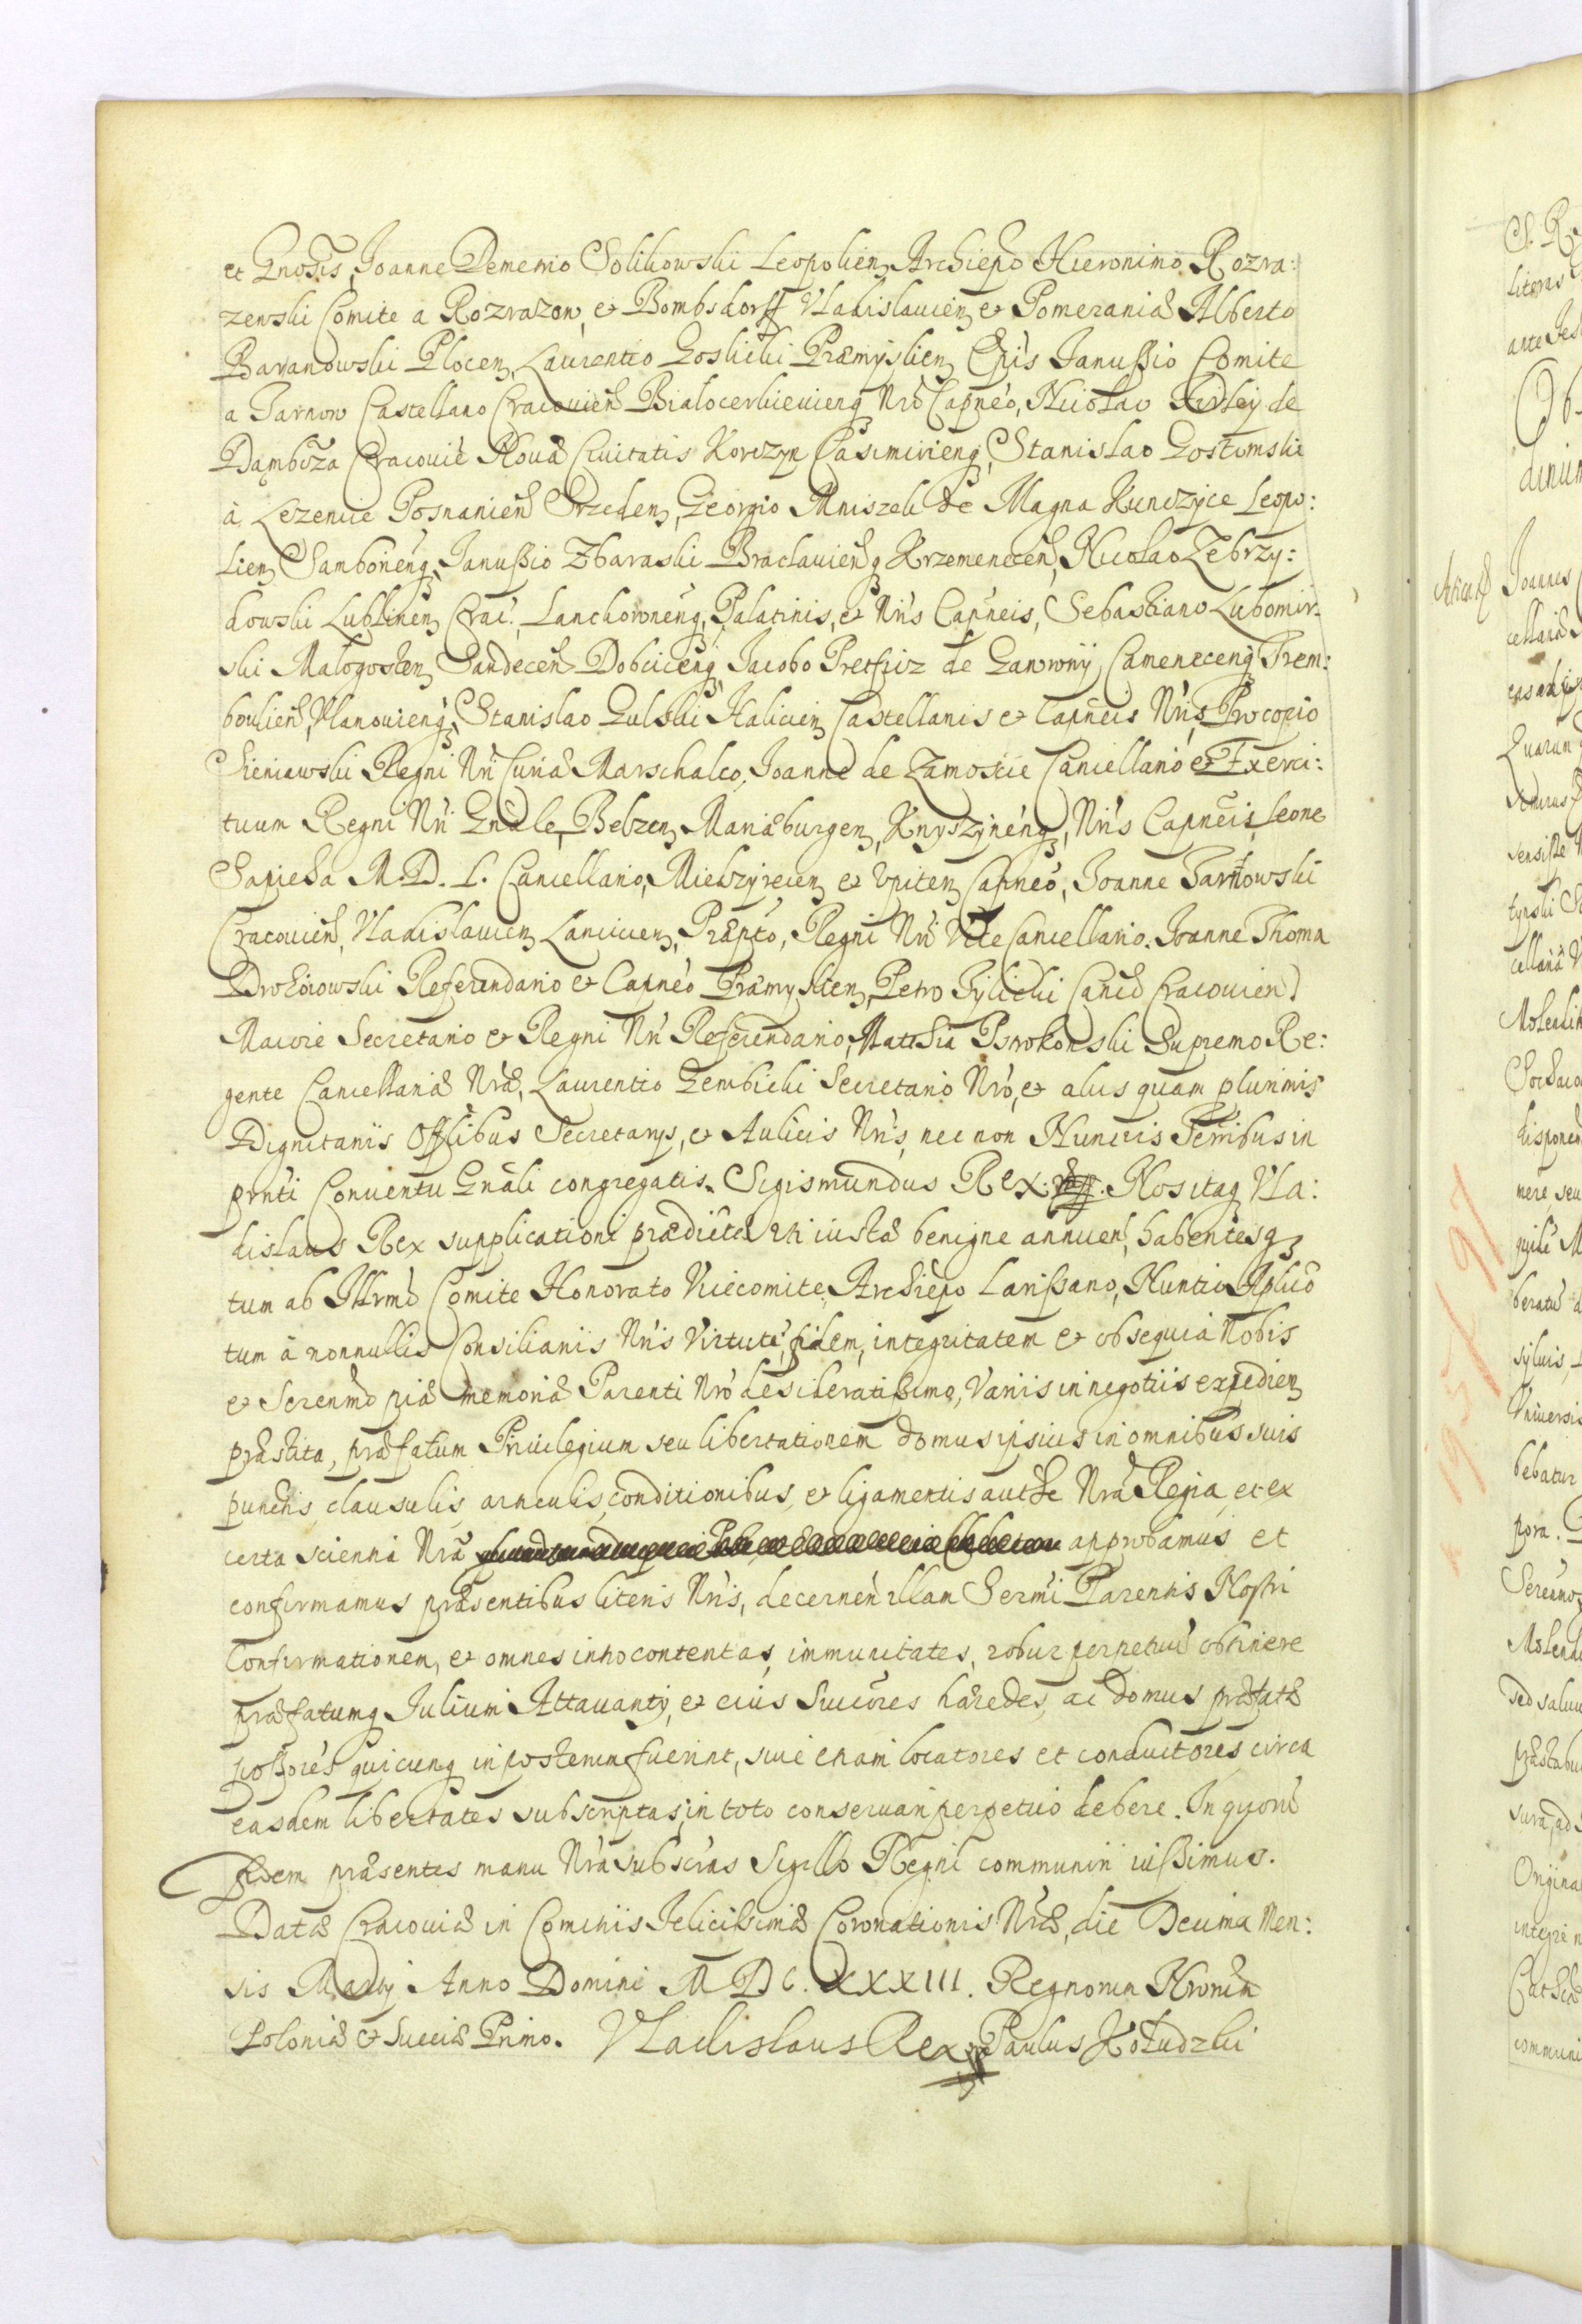 et Gnosis, Joanne Demetrio Solikowski Leopolien, Archiepo Hieronimo Rozra:
zewski Comite a Rozrazow, et Bombsdorff Vladislauien, et Pomeraniæ Alberto
Baranowski Plocen, Laurentio Goslicki Præmyslien, Epis Janussio Comite
a Tarnow Castellano Cracouien Bialocerkieuienq Nro Capneo, Nicolao Firley de
Dąmbroza Cracouien Nouæ Ciuitatis Korczyn Casimirienq, Stanislao Gostomski
à Lezenice Posnanien Srzeden, Georgio Mniszek de Magna Kunczyce Leopo:
lien, Samborienq, Janussio Zbaraski Braclauien, q Krzemenecen, Nicolao Zebrzy:
dowski Lublinen, Crac., Lanckoronenq, Palatinis, et Nris Capneis, Sebastiano Lubomir-
ski Malogosten, Sandecen Dobcicenq, Jacobo Pretficz de Gawrony, Camenecenq, Trem:
boulien, Vlanouienq, Stanislao Gulski Halicien, Castellanis et Capneis Nris, Procopio
Sieniawski Regni Nri Curiæ Marschalco, Joanne de Zamoscie Cancellario et Exerci:
tuum Regni Nri Gnale, Belzen, Mariæburgen, Knyszynenq, Nris Capneis, Leone
Sapieha M. D. L. Cancellario, Miedzyrecien, et Vpiten, Capneo, Joanne Tarnowski
Cracouien, Vladislauien, Lanicien, Præpto, Regni Nri Vice Cancellario. Joanne Thoma
Drohoiowski Referendario et Capneo Præmyslien, Petro Tylicki Canco Cracouien,
Maiore Secretario et Regni Nri Referendario, Matthia Pstrokonski Supremo Re:
gente Cancellariæ Nræ, Laurentio Gembicki Secretario Nro, et alijs quam plurimis
Dignitariis Offlibus Secretarijs, et Aulicis Nris, nec non Nuncijs Terribus in
prnti Conuentu Gnali congregatis. Sigismundus Rex. Nos itaq Vla:
dislaus Rex supplicationi prædictæ uti iustæ benigne annuen, habentesq
tum ab Illrmo Comite Honorato Vicecomite, Archiepo Larissano, Nuntio Aplico
tum à nonnullis Consiliariis Nris Virtute, fidem, integritatem et obsequia Nobis
et Serenmo piæ memoriæ Parenti Nro desideratissimo, Variis in negotiis expedien,
præstita, præfatum Priuilegium seu libertationem domus ipsius in omnibus suis
punctis, clausulis, articulis, conditionibus, et ligamentis authe Nra Regia, et ex
certa scientia Nra approbamus et
confirmamus præsentibus literis Nris, decernen illam Sermi Parentis Nostri
Confirmationem, et omnes in ho contentas, immunitates, robur perpetuu obtinere
præfatumq Julium Attauanty, et eius Succores hæredes, ac domus præfatæ
possores quicunq in posterum fuerint, siue etiam locatores et conductores circa
easdem libertates subscriptas, in toto conseruari perpetuo debere. In quoru
fidem præsentes manu Nra subscras Sigillo Regni communiri iussimus.
Datæ Cracouiæ in Comitiis Felicissimæ Coronationis Nræ, die Decima Men:
sis Martij Anno Domini M D C. XXXIII. Regnorum Nrorum
Poloniæ et Sueciæ Primo. Vladislaus Rex Paulus Kołudzki